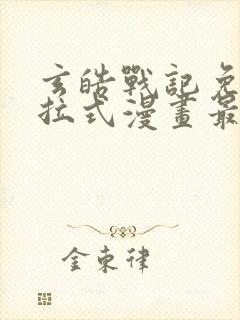 玄皓戰記免
拉式漫畫最
金東律